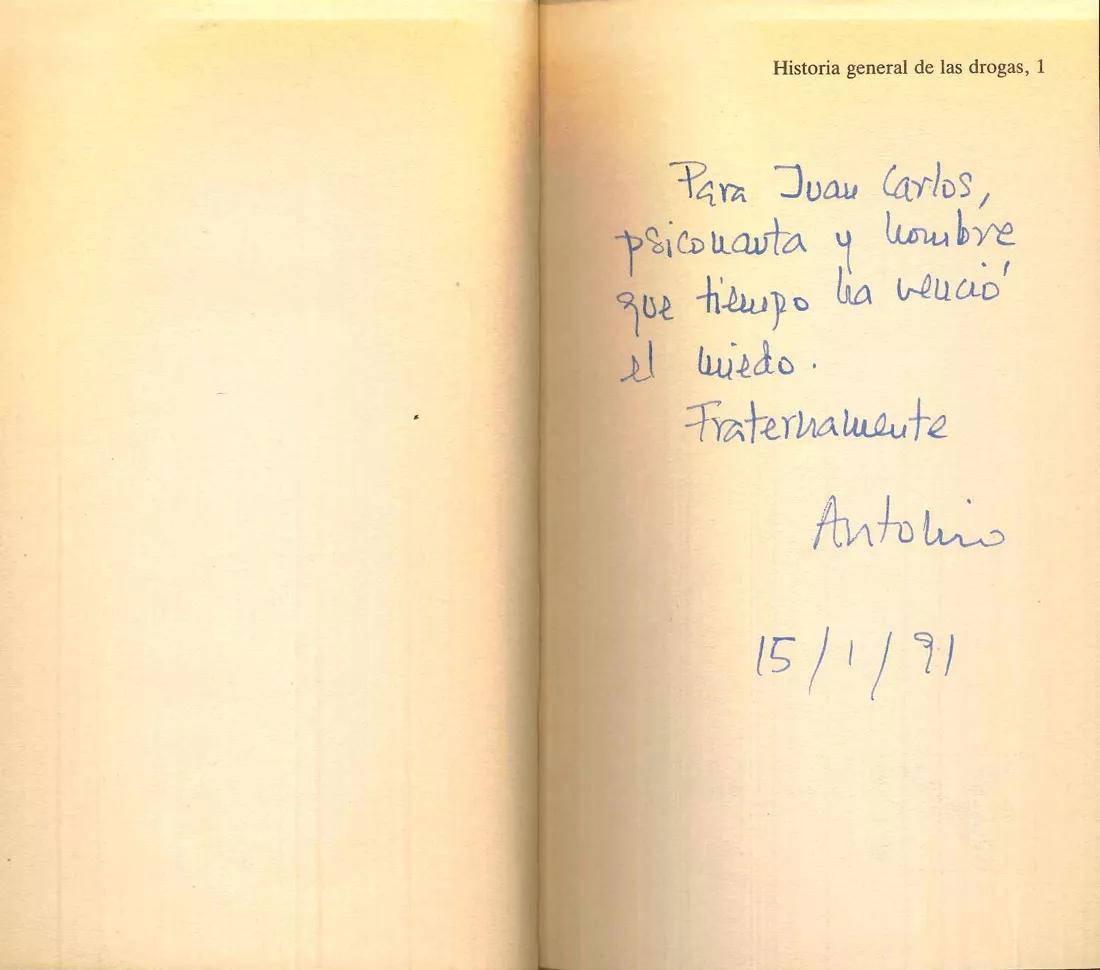 Historia general de las drogas, 1
Para Juan Carlos,
psiconauta y hombre
que tiempo ha venció
el miedo.
Fraternamente
Antolino
15/1/91